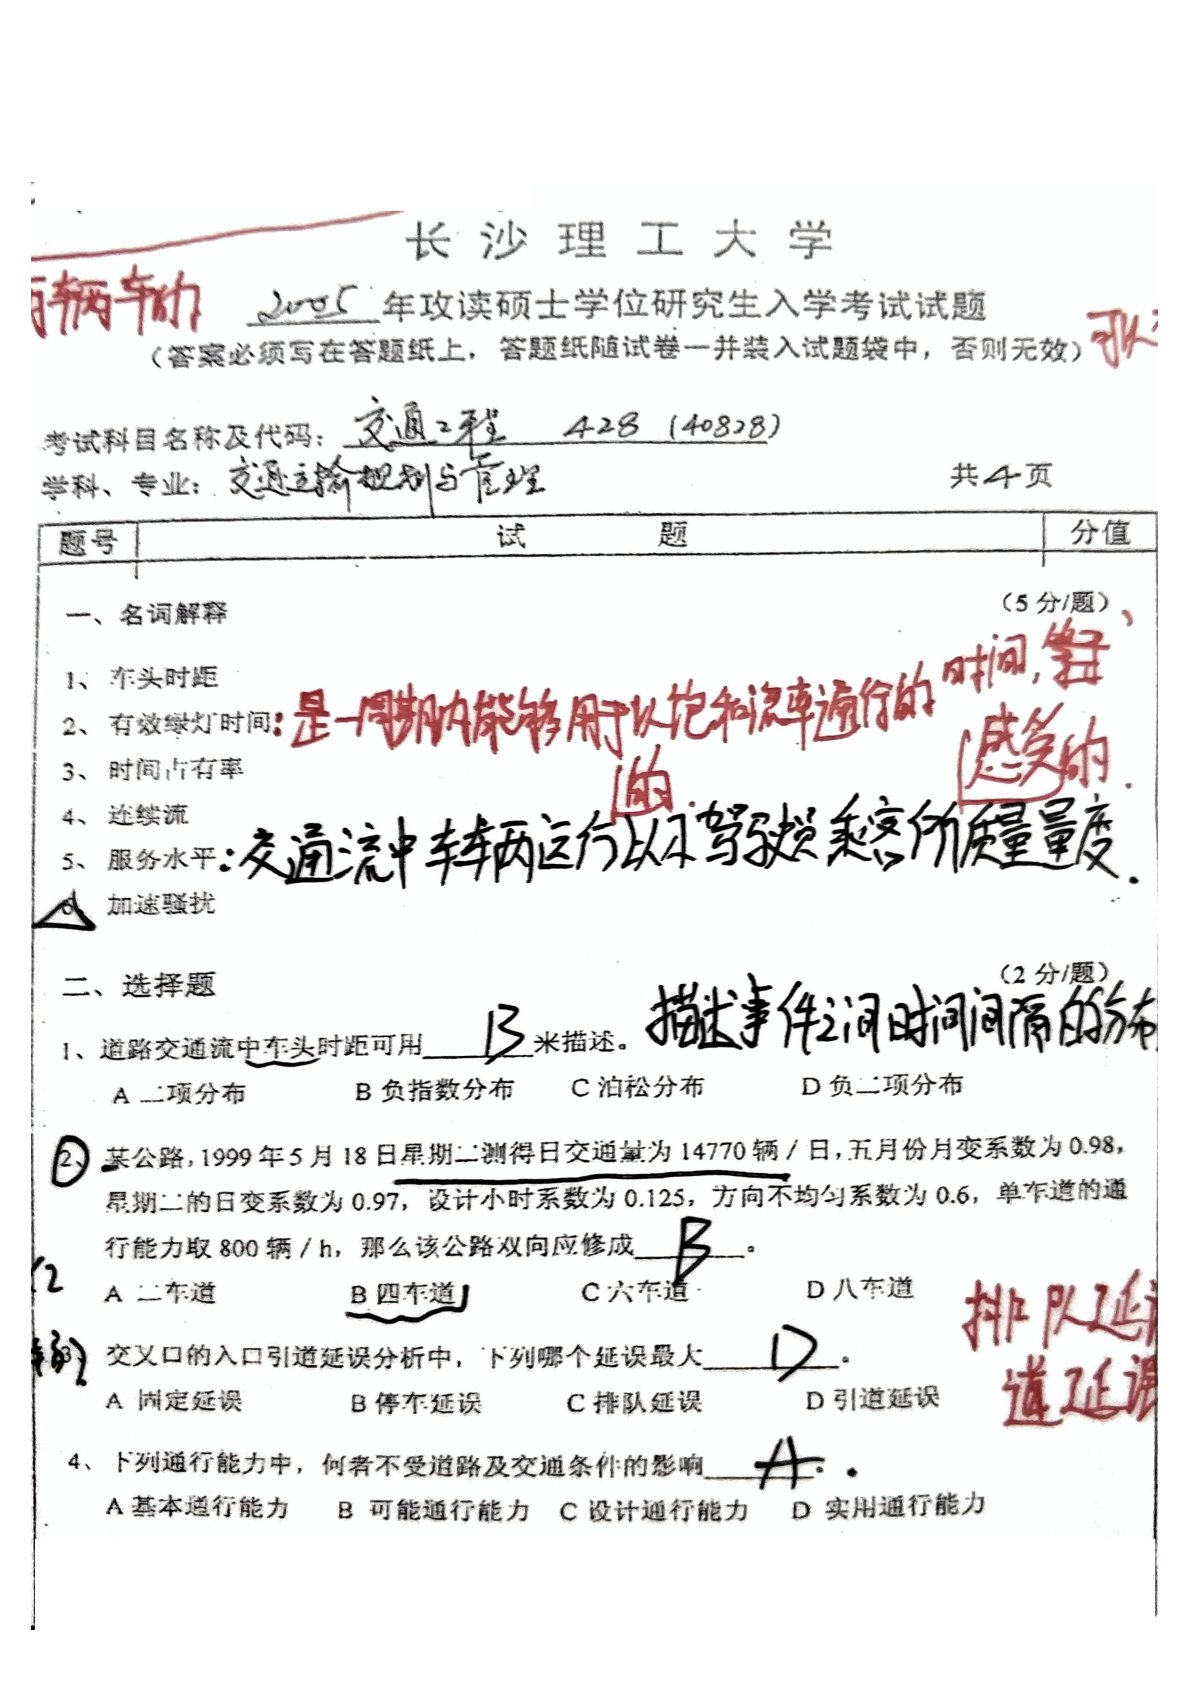 长沙理工大学
两车辆车的
2005年攻读硕士学位研究生入学考试试题
(答案必须写在答题纸上,答题纸随试卷一并装入试题袋中,否则无效)
可以
考试科目名称及代码:交通工程 428 (40828)
学科、专业:交通运输规划与管理 共4页
题号 试 题 分值
一、名词解释 (5分/题)
1、车头时距
2、有效绿灯时间:是一周期内能够用于以饱和流率通行的时间,等于
3、时间占有率
感受的
的
4、连续流
5、服务水平:交通流中车辆运行以及驾驶员乘客的质量量度.
6、加速骚扰
二、选择题 (2分/题)
描述事件之间时间间隔的分布
1、道路交通流中车头时距可用B米描述。
A 二项分布 B 负指数分布 C 泊松分布 D 负二项分布
2、某公路,1999年5月18日星期二测得日交通量为14770辆/日,五月份月变系数为0.98,
星期二的日变系数为0.97,设计小时系数为0.125,方向不均匀系数为0.6,单车道的通
行能力取800辆/h,那么该公路双向应修成B。
A 二车道 B 四车道 C 六车道 D 八车道
排队延误
3、交叉口的入口引道延误分析中,下列哪个延误最大D。
A 固定延误 B 停车延误 C 排队延误 D 引道延误
道延误
4、下列通行能力中,何者不受道路及交通条件的影响A.
A 基本通行能力 B 可能通行能力 C 设计通行能力 D 实用通行能力